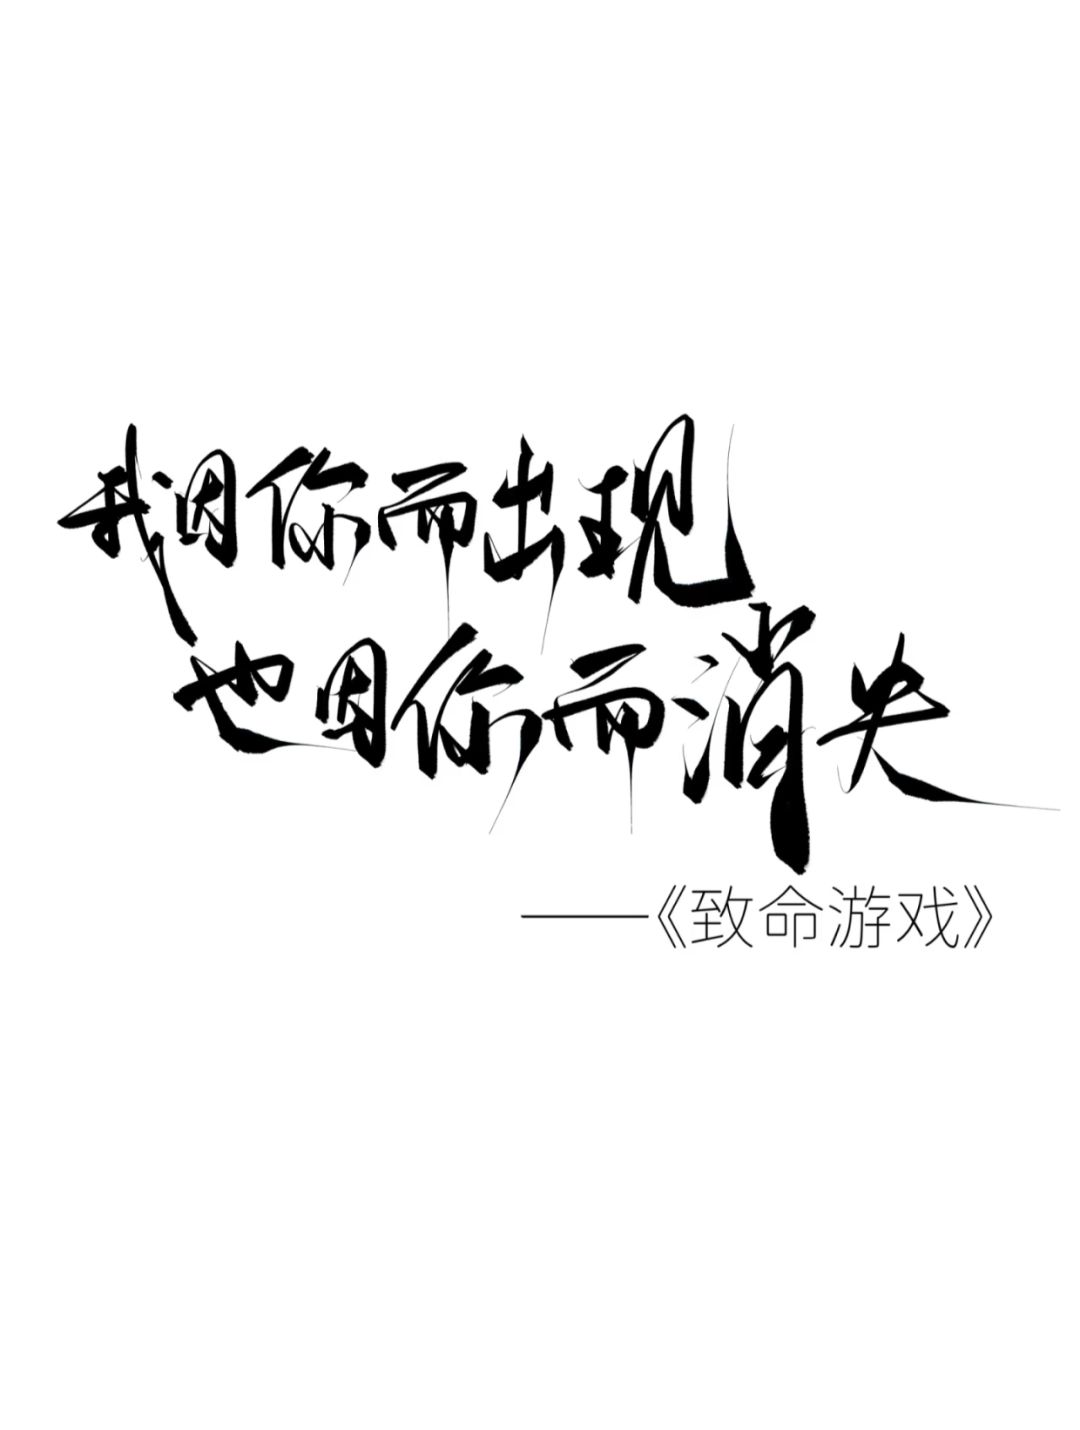 我因你而出现
也因你而消失
——《致命游戏》